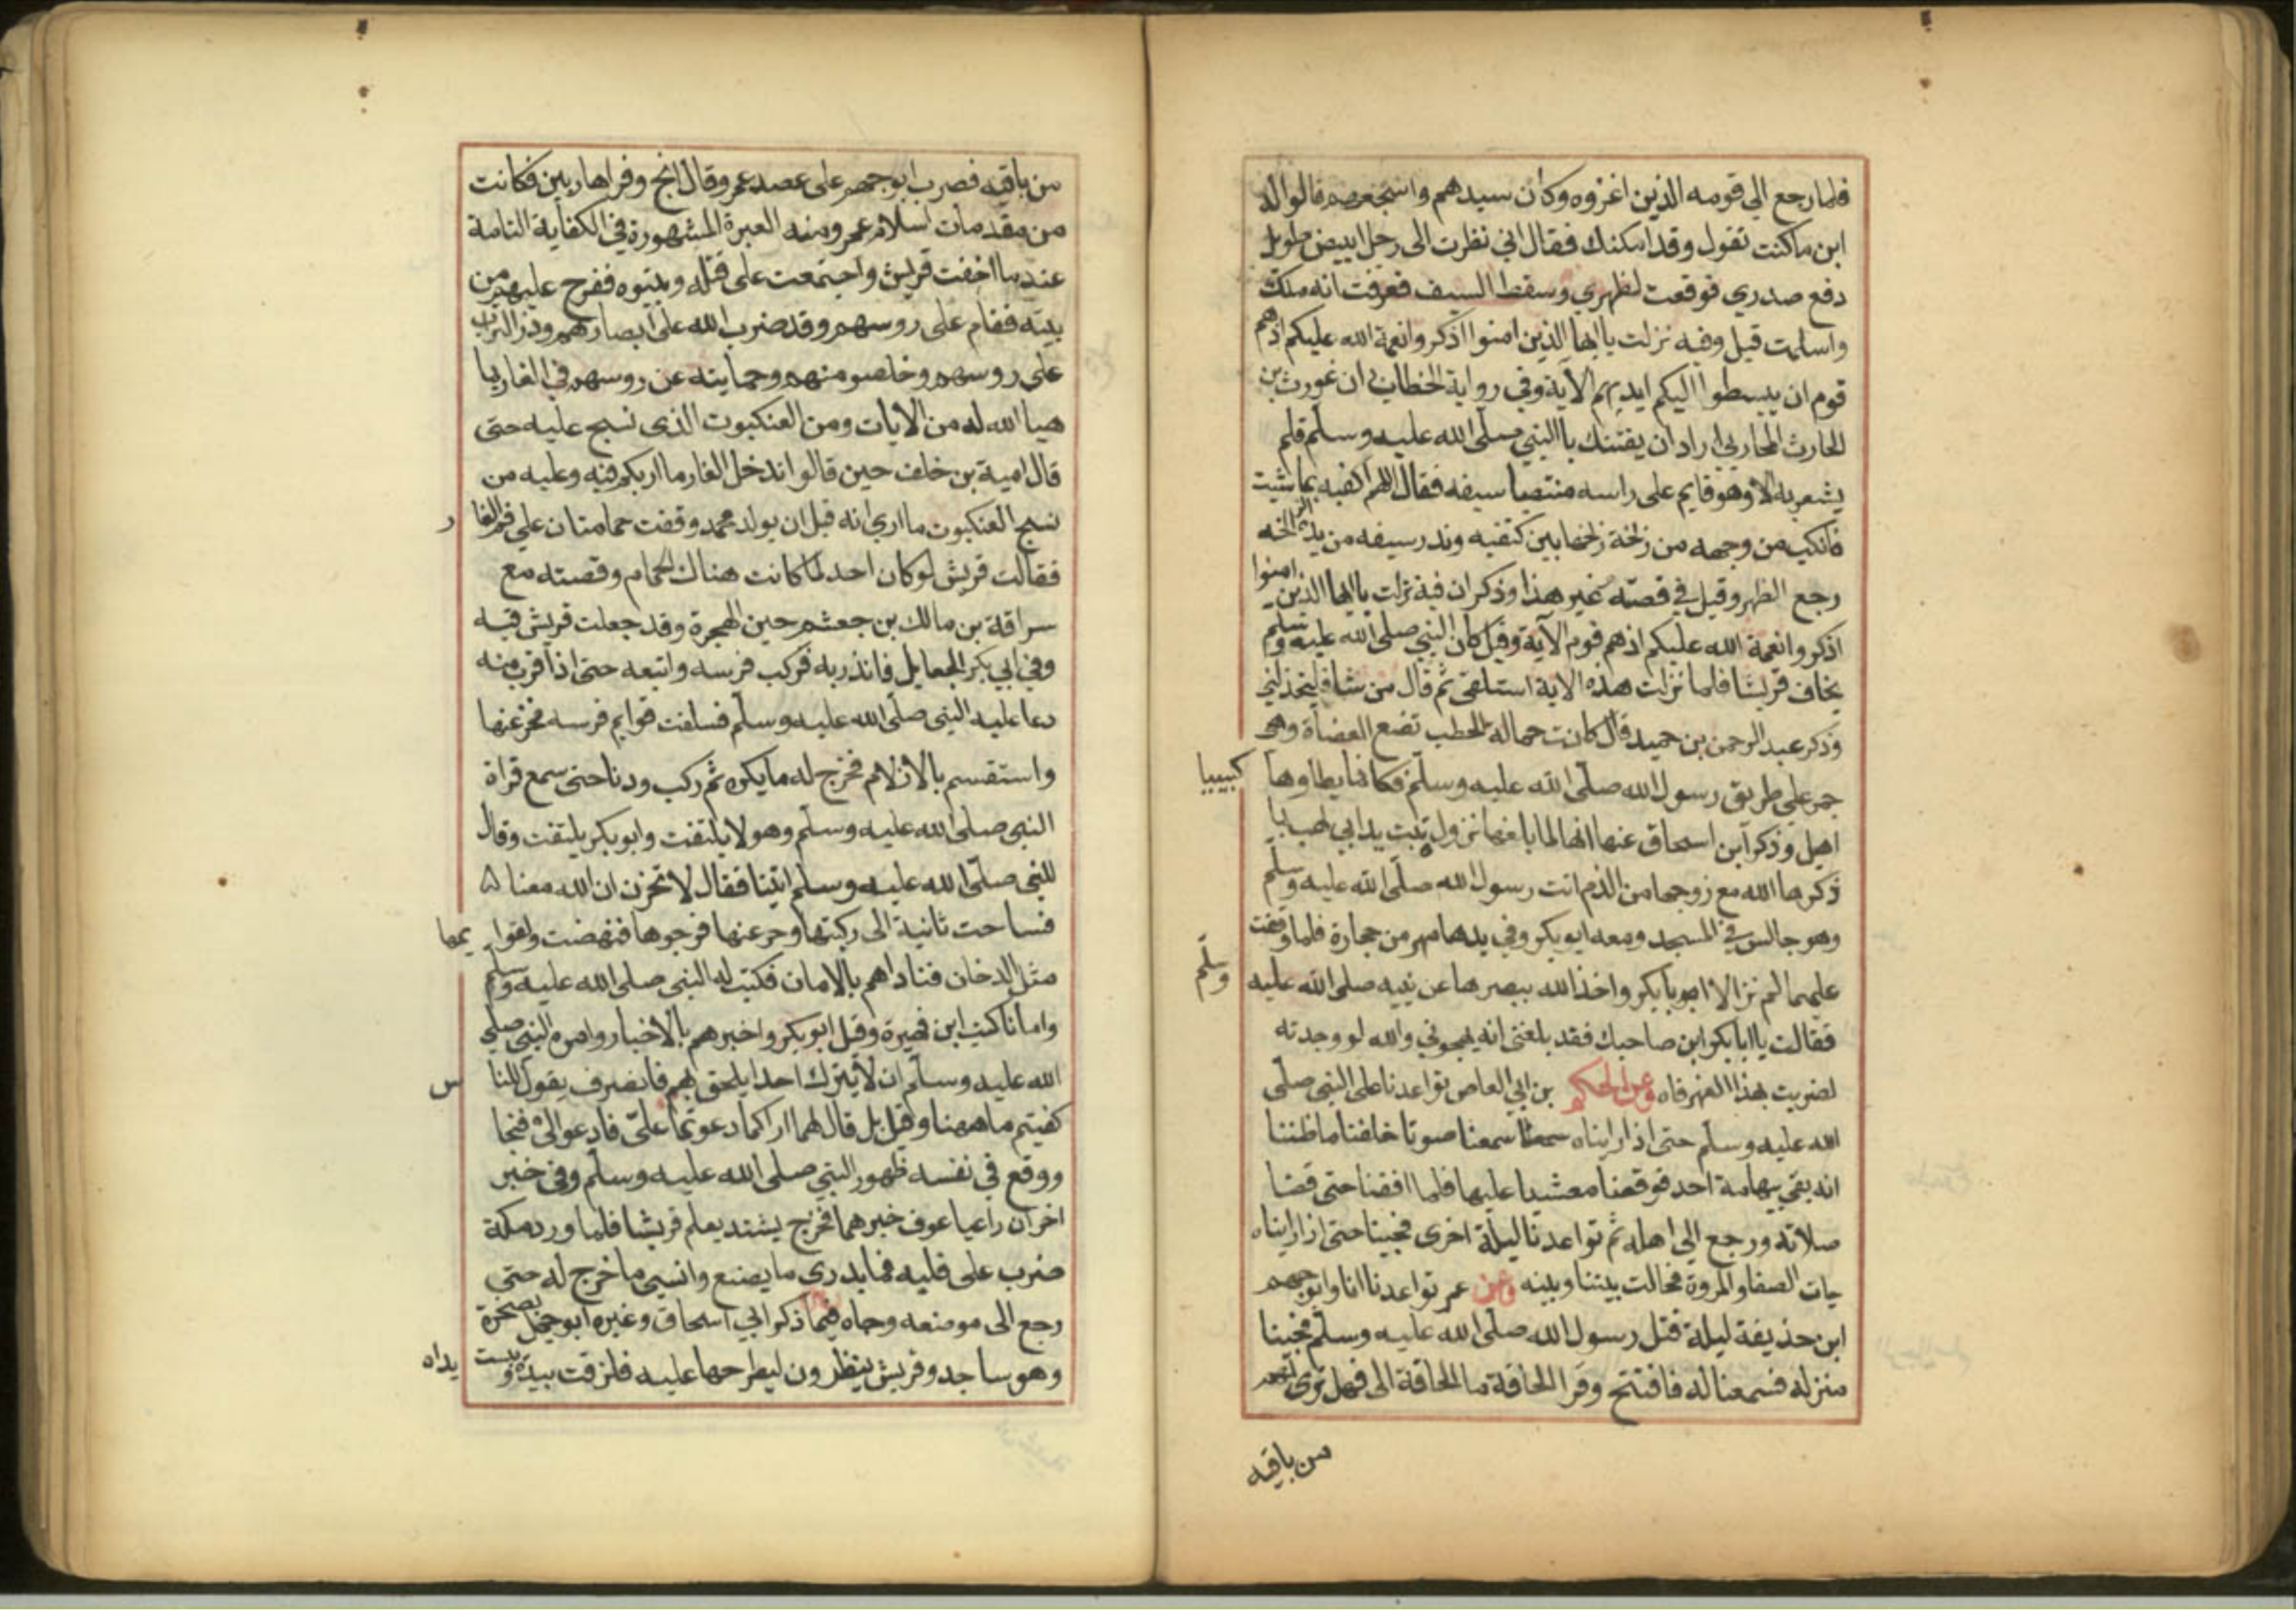 فلما رجع الى قومه الذين اغزوه وكان سيدهم واشجعهم قالوا له
اين ما كنت تقول وقد امكنك فقال اني نظرت الى رجل ابيض طويل
دفع صدري فوقعت لظهري وسقط السيف فعرفت انه ملك
واسلمت قيل وفيه نزلت ياايها الذين امنوا اذكروا نعمة الله عليكم اذ هم
قوم ان يبسطوا اليكم ايديهم الاية وفي رواية الخطابي ان غورث بن
الحارث المحاربي اراد ان يفتك باالنبي صلى الله عليه وسلم فلم
يشعر به الا وهو قايم على راسه منتضيا سيفه فقال اللهم اكفنيه بما شيت
فانكب من وجهه من زلخة زلخها بين كتفيه وندر سيفه من يده الزلخه
رجع الظهر وقيل في قصته غير هذا وذكر ان فيه نزلت ياايها الذين امنوا
اذكروا نعمة الله عليكم اذ هم قوم الاية وقيل كان النبي صلى الله عليه وسلم
يخاف قريشا فلما نزلت هذه الاية استلقى ثم قال من شا فليخذلني
وذكر عبد الرحمن بن حميد قال كانت حمالة الحطب تضع العضاة وهي
جمر على طريق رسول الله صلى الله عليه وسلم فكانما يطاوها كبيبيا
اهيل وذكر ابن اسحاق عنها انها لما بلغها نزول تبت يدا ابي لهب بما
ذكرها الله مع زوجها من الذم اتت رسول الله صلى الله عليه وسلم
وهو جالس في المسجد ومعه ابو بكر وفي يدها فهر من حجارة فلما وقفت
عليهما لم تر الا ابو بابكر واخذ الله ببصرها عن نبيه صلى الله عليه وسلم
فقالت ياابابكر اين صاحبك فقد بلغني انه يهجوني والله لو وجدته
لضربت بهذا الفهر فاه وعن الحكم بن ابي العاص تواعدنا على النبي صلى
الله عليه وسلم حتى اذا رايناه سمعنا صوتا خلفنا ما ظننا
انه بقي بتهامة احد فوقعنا مغشيا عليها فلما افقنا حتى قضا
صلاته ورجع الى اهله ثم تواعدنا ليلة اخرى فجينا حتى اذا رايناه
جات الصفا والمروة فحالت بيننا وبينه وعن عمر تواعدنا انا وابو جهم
ابن حذيفة ليلة قتل رسول الله صلى الله عليه وسلم فجينا
منزله فسمعنا له فافتتح وقرا الحاقة ما الحاقة الى فهل ترى لهم
من باقيه
من باقيه فضرب ابو جهم على عضد عمر وقال انج وفرا هاربين فكانت
من مقدمات اسلام عمر ومنه العبرة المشهورة في الكفاية التامة
عندما اخفت قريش واجتمعت على قتله وبيتوه فخرج عليهم من
بيته فقام على روسهم وقد ضرب الله على ابصارهم وذر التراب
على روسهم وخلص منهم وحمايته عن روسهم في الغار بما
هيا الله له من الايات ومن العنكبوت الذي نسج عليه حتى
قال امية بن خلف حين قالوا ندخل الغار ما اربكم فيه وعليه من
نسج العنكبوت ما ارى انه قبل ان يولد محمد وقفت حمامتان على فم الغار
فقالت قريش لو كان احد لما كانت هناك الحمام وقصته مع
سراقة بن مالك بن جعشم حين الهجرة وقد جعلت قريش فيه
وفي ابي بكر الجعايل فانذر به فركب فرسه واتبعه حتى اذا قرب منه
دعا عليه النبي صلى الله عليه وسلم فساخت قوايم فرسه فخر عنها
واستقسم بالازلام فخرج له ما يكره ثم ركب ودنا حتى سمع قراة
النبي صلى الله عليه وسلم وهو لا يلتفت وابو بكر يلتفت وقال
للنبي صلى الله عليه وسلم اتينا فقال لا تحزن ان الله معنا
فساخت ثانية الى ركبتها وخر عنها فزجرها فنهضت ولقوايمها
مثل الدخان فناداهم بالامان فكتب له النبي صلى الله عليه وسلم
وامانا كتبه ابن فهيرة وقيل ابو بكر واخبرهم بالاخبار وامره النبي صلى
الله عليه وسلم ان لا يترك احدا يلحق بهم فانصرف يقول للناس
كفيتم ما ههنا وقيل بل قال لهما اراكما دعوتما علي فادعوا لي فنجا
ووقع في نفسه ظهور النبي صلى الله عليه وسلم وفي خبر
اخر ان راعيا عرف خبرهما فخرج يشتد يعلم قريشا فلما ورد مكة
ضرب على قلبه فما يدري ما يصنع وانسي ما خرج له حتى
رجع الى موضعه وجاه فيما ذكر ابي اسحاق وغيره ابو جهل بصخرة
وهو ساجد وقريش ينظرون ليطرحها عليه فلزقت بيده ويبست يداه